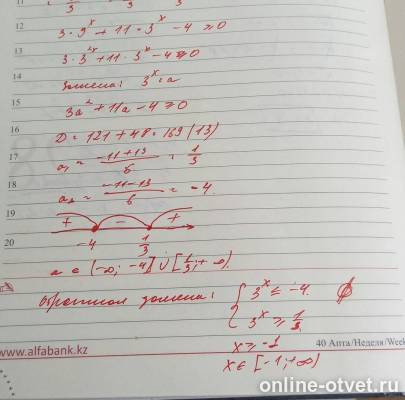 11
3 3
12
3·9^x + 11·3^x - 4 ≥ 0
13
3·3^2x + 11·3^x - 4 ≥ 0
14
Замена: 3^x = a
15
3a² + 11a - 4 ≥ 0
16
D = 121 + 48 = 169 (13)
17
a₁ = (-11+13)/6 = 1/3
18
a₂ = (-11-13)/6 = -4
19
+ - +
20
-4 1/3
a ∈ (-∞; -4] ∪ [1/3; +∞)
Обратная замена: { 3^x ≤ -4 ∅
3^x ≥ 1/3
x ≥ -1
www.alfabank.kz
40 Апта/Неделя/Week
x ∈ [-1; +∞)
online-otvet.ru